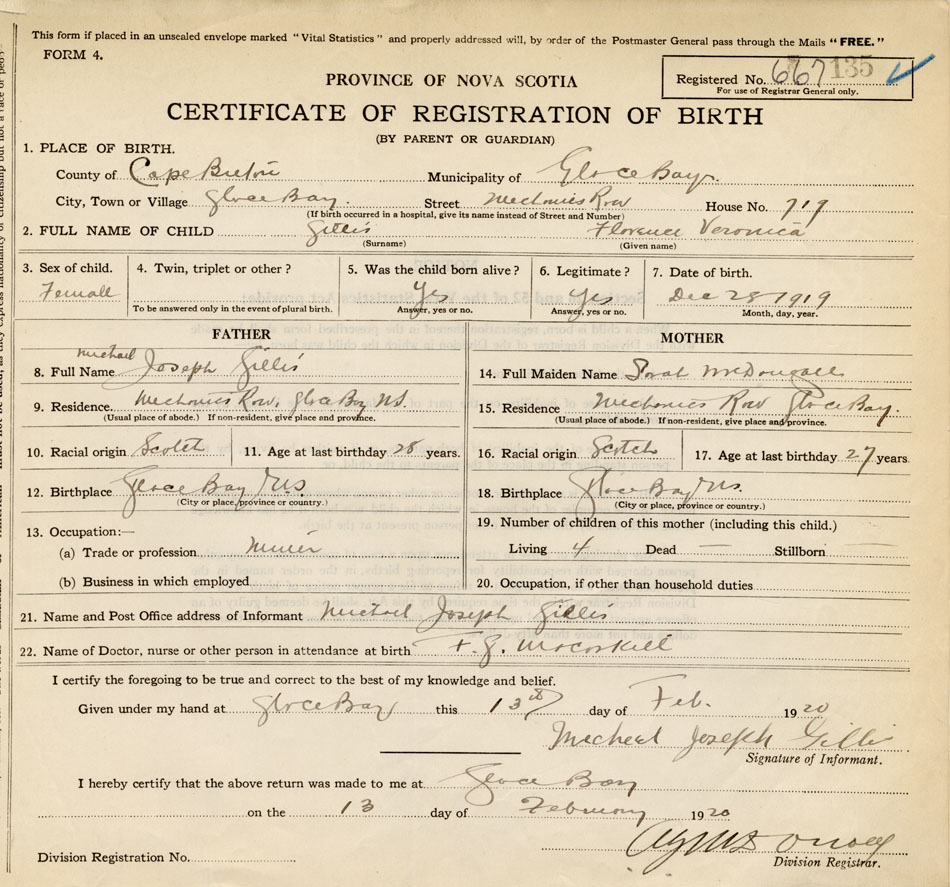 This form if placed in an unsealed envelope marked "Vital Statistics" and properly addressed will, by order of the Postmaster General pass through the Mails "FREE."
FORM 4.
PROVINCE OF NOVA SCOTIA
Registered No. 667 135
For use of Registrar General only.
CERTIFICATE OF REGISTRATION OF BIRTH
(BY PARENT OR GUARDIAN)
1. PLACE OF BIRTH.
County of Cape Breton Municipality of Glace Bay.
City, Town or Village Glace Bay. Street Mechanics Row House No. 719
(If birth occurred in a hospital, give its name instead of Street and Number)
2. FULL NAME OF CHILD Gillis Florence Veronica
(Surname) (Given name)
3. Sex of child. 4. Twin, triplet or other? 5. Was the child born alive? 6. Legitimate? 7. Date of birth.
Female Yes Yes Dec 28 1919
To be answered only in the event of plural birth. Answer, yes or no. Answer, yes or no. Month, day, year.
FATHER
Michael
8. Full Name Joseph Gillis
9. Residence. Mechanics Row, Glace Bay N.S.
(Usual place of abode.) If non-resident, give place and province.
10. Racial origin Scotch 11. Age at last birthday 28 years.
12. Birthplace Glace Bay N.S.
(City or place, province or country.)
13. Occupation:—
(a) Trade or profession Miner
(b) Business in which employed
MOTHER
14. Full Maiden Name Sarah McDougall
15. Residence Mechanics Row Glace Bay.
(Usual place of abode.) If non-resident, give place and province.
16. Racial origin Scotch 17. Age at last birthday 27 years.
18. Birthplace Glace Bay N.S.
(City or place, province or country.)
19. Number of children of this mother (including this child.)
Living 4 Dead — Stillborn —
20. Occupation, if other than household duties
21. Name and Post Office address of Informant Michael Joseph Gillis
22. Name of Doctor, nurse or other person in attendance at birth F. J. McCorkill
I certify the foregoing to be true and correct to the best of my knowledge and belief.
Given under my hand at Glace Bay this 13th day of Feb. 1920
Micheal Joseph Gillis
Signature of Informant.
I hereby certify that the above return was made to me at Glace Bay
on the 13 day of February 1920
Division Registration No.
Division Registrar.